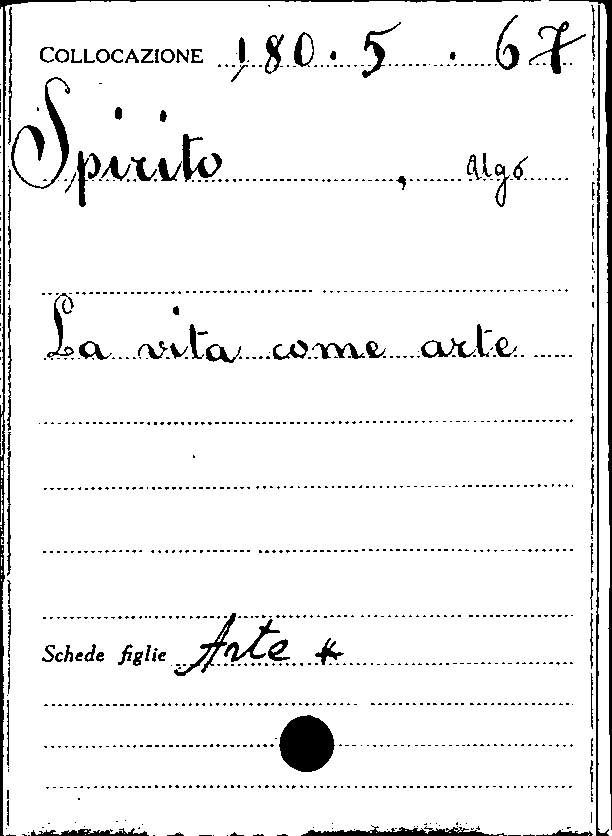 COLLOCAZIONE 180.5.67
Spirito, Ugo
La vita come arte
Schede figlie Arte *